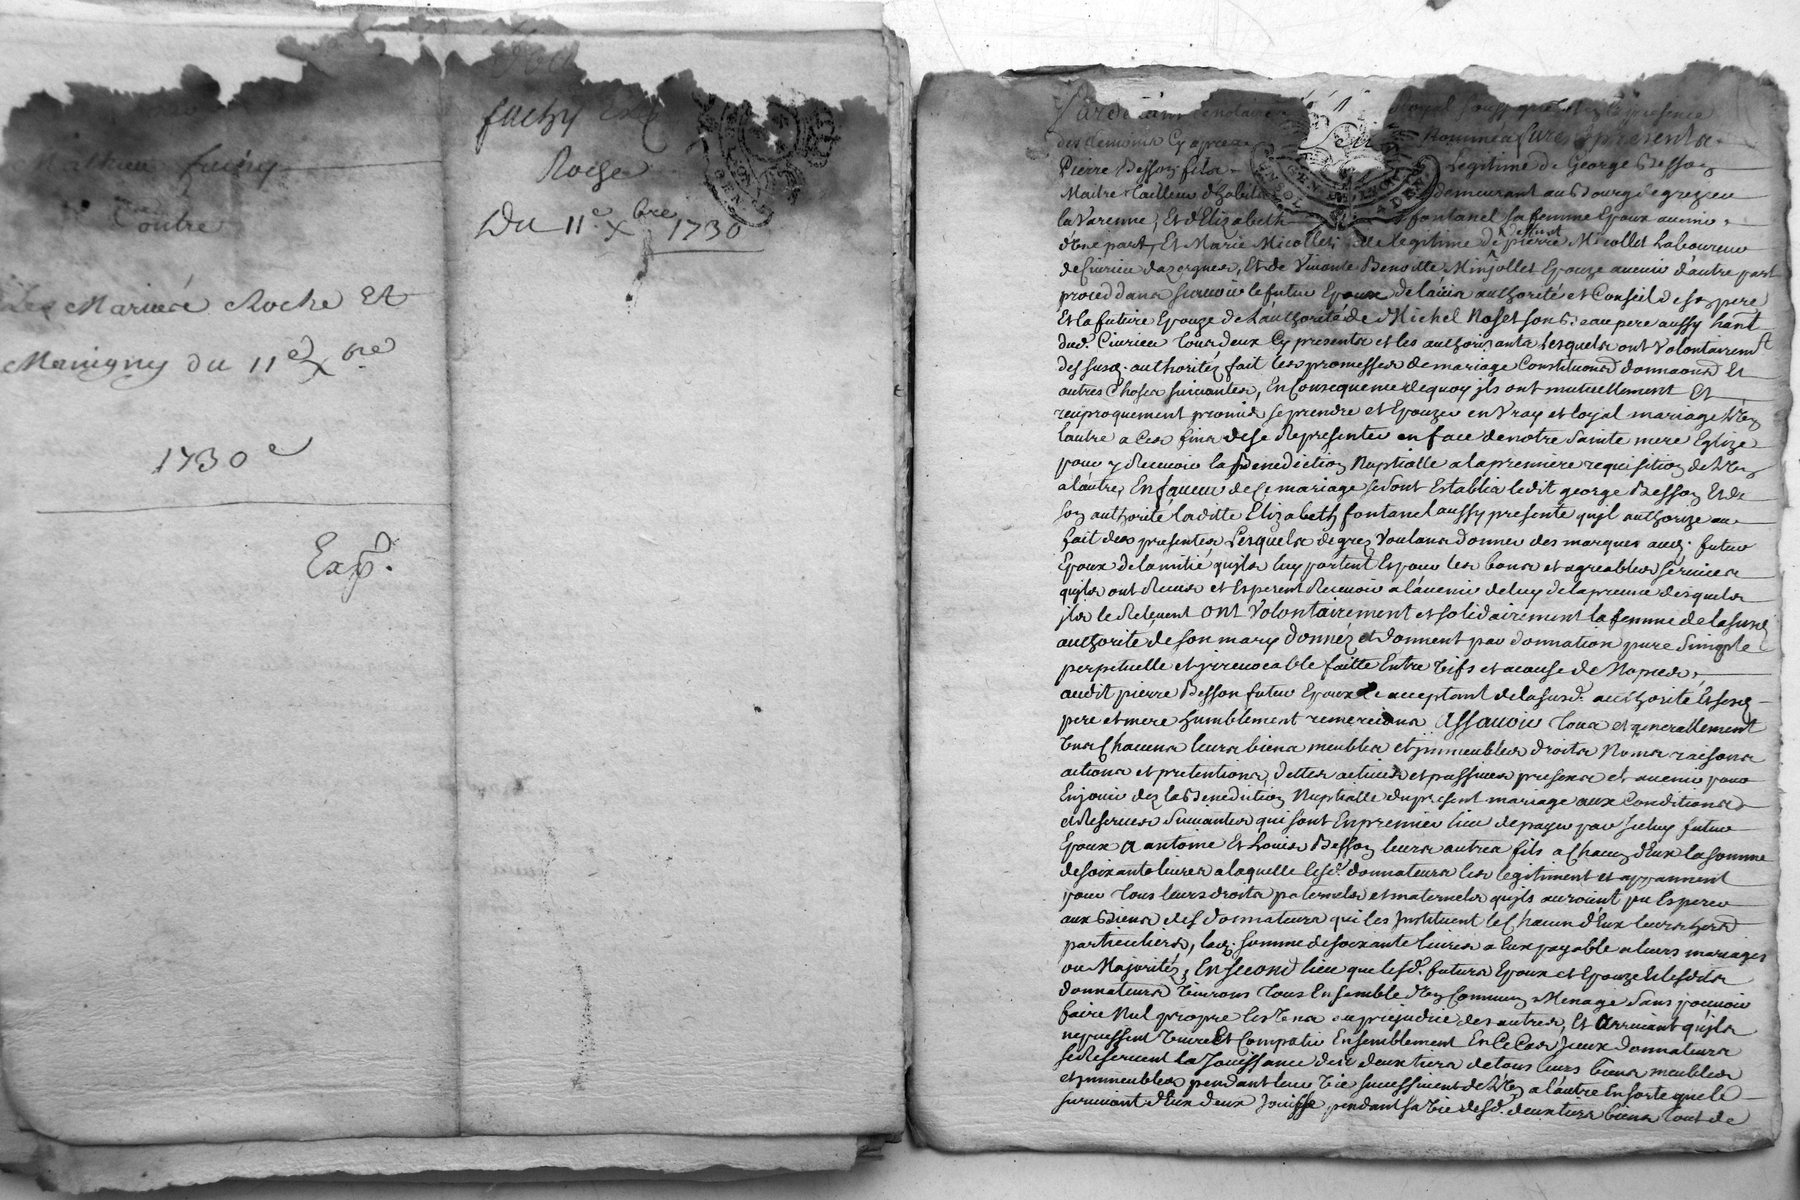 Mathieu fachy
Contre
Les Mariées Roche Et
Marigny du 11e Xbre
1730
Exp.
fachy
Roche
Du 11e Xbre 1730
Pardevant le notaire Royal soussigné Et en presence
des temoins Cy apres
Pierre Besson fils Legitime de George Besson
Maitre Tailleur d'habits demeurant au Bourg de grezieu
la Varenne, Et d'Elizabeth fontanel sa femme Epoux avenir
d'Une part, Et Marie Micollet legitime de deffunt pierre Micollet Laboureur
de Civrieu dazergues, Et de Vivante Benoitte Minjollet Epouze avenir d'autre part
proceddans sçavoir le futur Epoux de l'avis authorité et Conseil de ses pere
Et la future Epouze de L'authorité de Michel Noset son Beau pere aussy hant
dud. Civrieu Tous deux Cy presents et les authorisants Lesquels ont Volontairemt
des susd. authoritez fait les promesses de mariage Constitutions donnaons Et
autres Choses suivantes, En Consequence de quoy jls ont mutuellement Et
reciproquement promis se prendre et Epouzer en Vray et loyal mariage L'Un
lautre a Ces fins de se Representer en face de notre Sainte mere Eglize
pour y Recevoir la Benediction Nuptialle a la premiere requisition de L'Un
a l'autre, En faveur de Ce mariage se sont Establis ledit george Besson Et de
son authorité laditte Elizabeth fontanel aussy presente qu'jl authorize au
fait des presentes Lesquels de grez Voulans donner des marques aud. futur
Epoux de l'amitié qu'jls luy portent Et pour les bons et agreables services
qu'jls ont Reçus et Esperent Recevoir a l'avenir de luy de la preuve desquels
jls le Relevent ont Volontairement et solidairement la femme de la susd.
authorité de son mary donnéz et donnent par donnation pure Simple
perpetuelle et jrrevocable faitte Entre Vifs et a cause de Nopces
audit pierre Besson futur Epoux acceptant de la susd. authorité Et sesd.
pere et mere humblement remercians Assavoir Tous et generallement
Uns Chacuns leurs biens meubles et jmmeubles droits Noms raisons
actions et pretentions, dettes actives et passives presens et avenir pour
En jouir dez la Benediction Nuptialle du present mariage aux Conditions
et Reserves Suivantes qui sont En premier lieu de payer par Jceluy futur
Epoux a antoine Et Louis Besson leurs autres fils a Chacun d'Eux la somme
de soixante livres a laquelle lesd. donnateurs les legitiment et appannent
pour Tous leurs droits paternels et maternels qu'jls auroient pu Esperer
aux Biens desd. donnateurs qui les Jnstituent le Chacun d'Eux leurs hers
particuliers, lad. somme de soixante livres a Eux payable a leurs mariages
ou Majoritéz, En second lieu que lesd. futurs Epoux et Epouze Et lesdits
donnateurs Vivrons Tous Ensemble d'Un Commun Menage Sans pouvoir
faire Nul propre les Uns au prejudice des autres, Et arrivant qu'jls
ne pussent Vivre Et Compatir Ensemblement En Ce Cas Jceux donnateurs
se Reservent La Jouissance des deux tiers de tous leurs biens meubles
et jmmeubles pendant leur Vie successivement de L'Un a l'autre En sorte que le
survivant d'Eux deux Jouisse pendant sa Vie desd. deux tiers biens Tout de